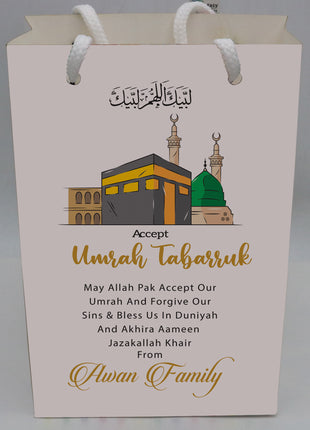 لبيك اللهم لبيك
Accept
Umrah Tabarruk
May Allah Pak Accept Our
Umrah And Forgive Our
Sins & Bless Us In Duniyah
And Akhira Aameen
Jazakallah Khair
From
Awan Family